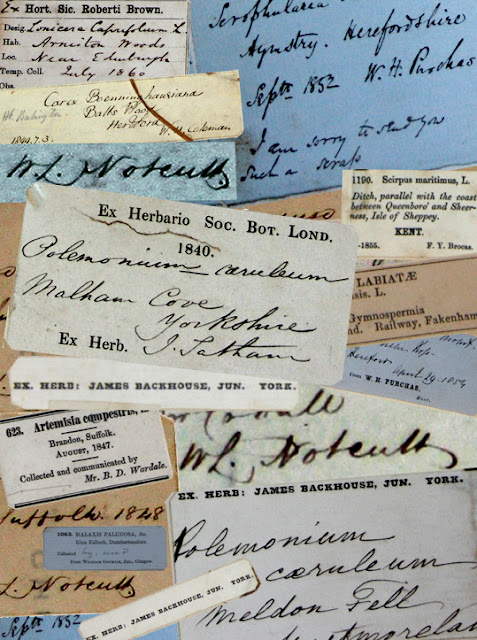 Ex Hort. Sic. Roberti Brown.
Desig. Lonicera Caprifolium L.
Hab. Arniston Woods
Loc. Near Edinburgh
Temp. Coll. July 1860
Obs.
Scrophularia
Aymestry. Herefordshire
Septr. 1852 W. H. Purchas
I am sorry to send you
such a scrap
Carex Boenninghausiana
Balls Wood
Hertford
W. H. Coleman
1844.7.3.
W. L. Notcutt
1190. Scirpus maritimus, L.
Ditch, parallel with the coast
between Queenboro' and Sheer-
ness, Isle of Sheppey.
KENT.
-1855. F. Y. Brocas.
Ex Herbario Soc. Bot. Lond.
1840.
Polemonium cæruleum
Malham Cove
Yorkshire
Ex Herb. J. Tatham
LABIATÆ
sis. L.
Gymnospermia
nd. Railway, Fakenham
Hereford April 29. 1854
From W. H. PURCHAS,
EX. HERB: JAMES BACKHOUSE, JUN. YORK.
623. Artemisia campestris, L
Brandon, Suffolk.
August, 1847.
Collected and communicated by
Mr. B. D. Wardale.
W. L. Notcutt
EX. HERB: JAMES BACKHOUSE, JUN. YORK.
Polemonium
cæruleum
Meldon Fell
Westmoreland
Suffolk 1848
MALAXIS PALUDOSA,
Glen Falloch, Dumbartonshire.
Collected
From WILLIAM GOURLIE, Jun., Glasgow.
L. Notcutt
EX. HERB: JAMES BACKHOUSE, JUN. YORK.
Septr. 1852